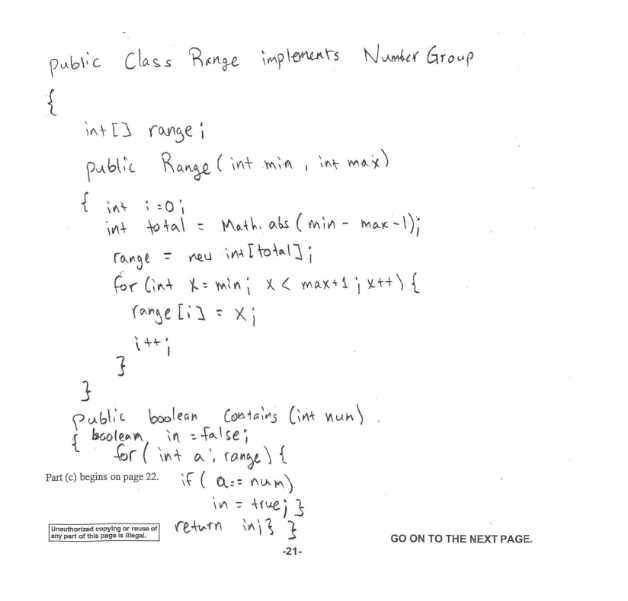 public Class Range implements Number Group
{
int[] range;
public Range (int min , int max)
{ int i=0;
int total = Math.abs (min - max-1);
range = new int[total];
for (int x=min; x < max+1 ; x++) {
range [i] = x;
i++;
}
}
public boolean Contains (int num)
{ boolean in = false;
for ( int a : range) {
Part (c) begins on page 22.
if ( a == num)
in = true; }
return in;} }
Unauthorized copying or reuse of
any part of this page is illegal.
GO ON TO THE NEXT PAGE.
-21-